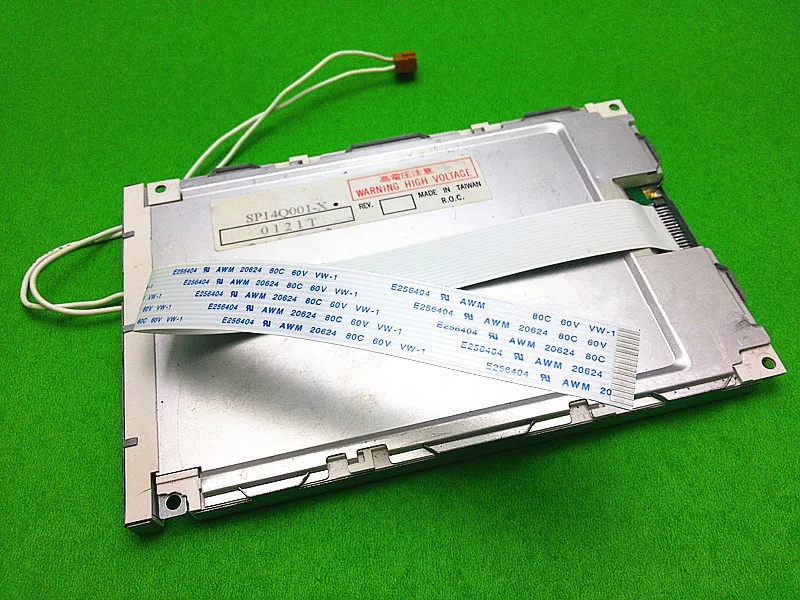 高電圧注意
WARNING HIGH VOLTAGE
SP14Q001-X
0121T
REV.
MADE IN TAIWAN
R.O.C.
E256404 AWM 20624 80C 60V VW-1
E256404 AWM 20624 80C 60V VW-1
VW-1 E256404 AWM 20624 80C 60V VW-1
60V VW-1 E256404 AWM 20624 80C 60V VW-1
80C 60V VW-1 E256404 AWM 20624 80C 60V VW-1
E256404 AWM 80C 60V VW-1
E256404 AWM 20624 80C 60V VW-1
E256404 AWM 20624 80C
E256404 AWM 20624
E256404 AWM 20